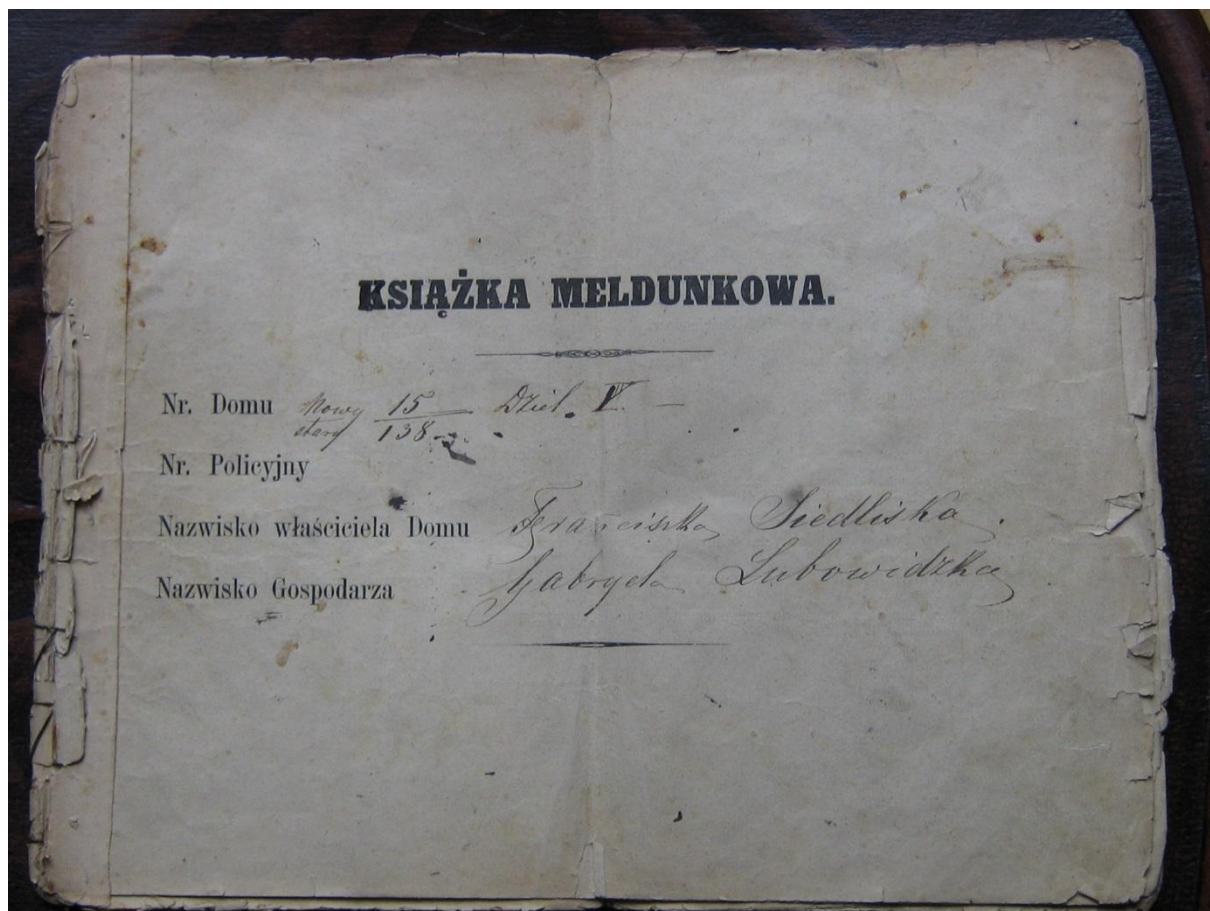 KSIĄŻKA MELDUNKOWA.
Nr. Domu Nowy 15 Dział. V. —
stary 138
Nr. Policyjny
Nazwisko właściciela Domu Franciszka Siedliska.
Nazwisko Gospodarza Gabryela Lubowidzka